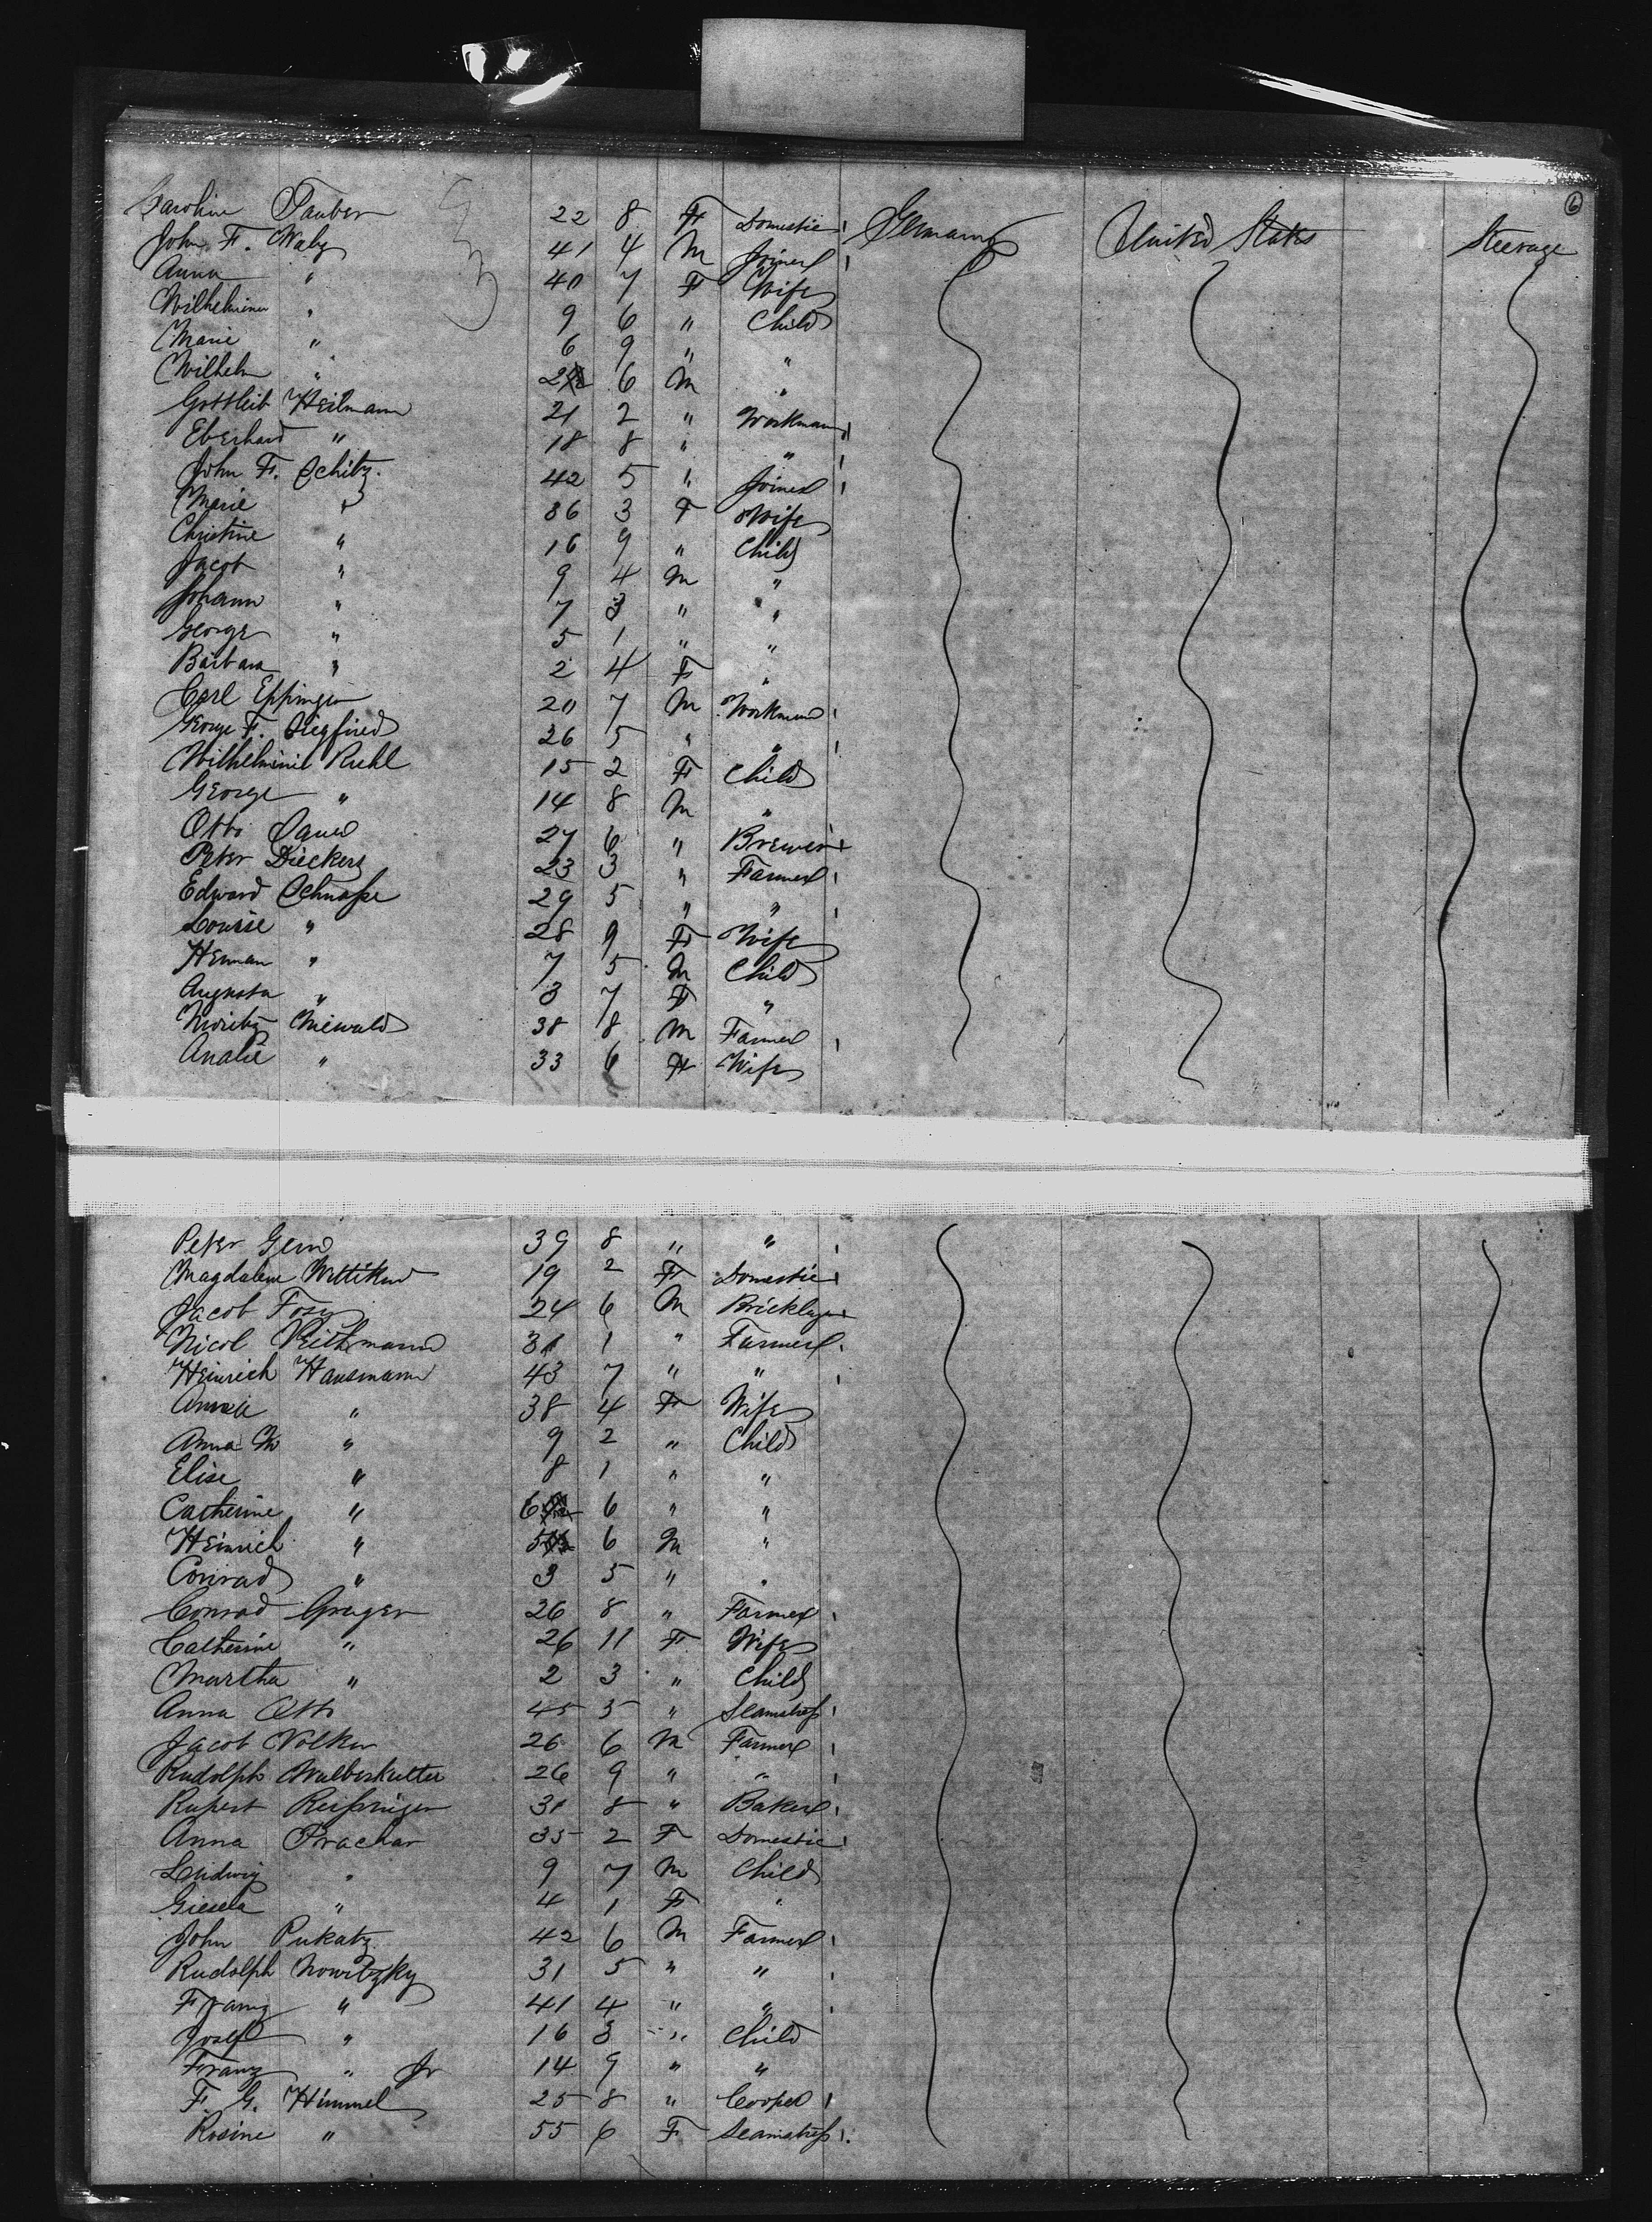 6
Caroline Tauber 22 8 F Domestic Germany United States Steerage
John F. Waly 41 4 M Joiner
Anna " 40 7 F Wife
Wilhelmina " 9 6 " Child
Marie " 6 9 " "
Wilhelm " 2 6 M "
Gottleib Heilmann 21 2 " Workman
Eberhard " 18 8 " "
John F. Schitz. 42 5 " Joiner
Marie " 36 3 F Wife
Christine " 16 9 " Child
Jacob " 9 4 M "
Johann " 7 3 " "
George " 5 1 " "
Barbara " 2 4 F "
Carl Eppinger 20 7 M Workman
George F. Siegfried 26 5 " "
Wilhelmine Ruhl 15 2 F Child
George " 14 8 M "
Otto Sauer 27 6 " Brewer
Peter Dieckers 23 3 " Farmer
Edward Schnasse 29 5 " "
Louise " 28 9 F Wife
Herman " 7 5 M Child
Augusta " 3 7 F "
Moritz Niewald 38 8 M Farmer
Analie " 33 6 F Wife
Peter Gern 39 8 " "
Magdalene Wittikind 19 2 F Domestic
Jacob Fosy 24 6 M Bricklayer
Nicol Reithmann 31 1 " Farmer
Heinrich Hausmann 43 7 " "
" 38 4 F Wife
Anna M " 9 2 " Child
Elise " 8 1 " "
Catherine " 6 6 " "
Heinrich " 5 6 M "
Conrad " 3 5 " "
Conrad Greger 26 8 " Farmer
Catherine " 26 11 F Wife
Martha " 2 3 " Child
Anna Otto 45 5 " Seamstress
Jacob Volker 26 6 M Farmer
Rudolph Wulberkutter 26 9 " "
Rupert Reissniger 31 8 " Baker
Anna Prachar 35 2 F Domestic
Ludwig " 9 7 M Child
Giesela " 4 1 F "
John Pukatz 42 6 M Farmer
Rudolph Nowitzky 31 5 " "
Franz " 41 4 " "
Josef " 16 3 " Child
Franz " Jr 14 9 " "
F. G. Himmel 25 8 " Cooper
Rosine " 55 6 F Seamstress